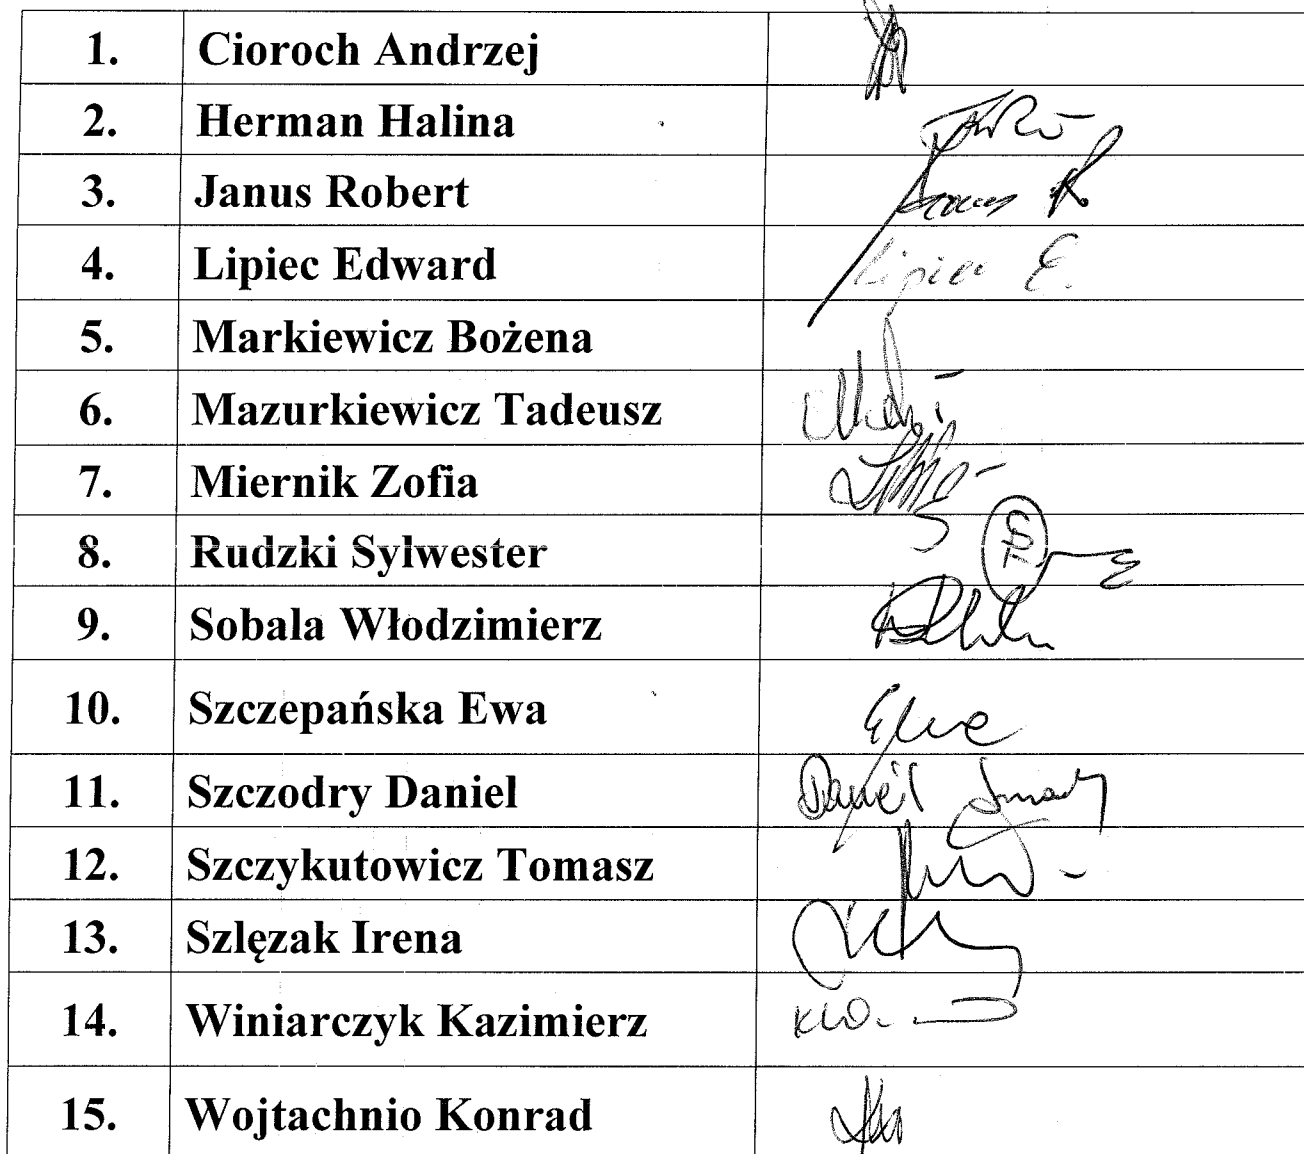 1. Cioroch Andrzej
2. Herman Halina
3. Janus Robert Janus R
4. Lipiec Edward Lipiec E.
5. Markiewicz Bożena
6. Mazurkiewicz Tadeusz
7. Miernik Zofia
8. Rudzki Sylwester
9. Sobala Włodzimierz
10. Szczepańska Ewa
11. Szczodry Daniel Daniel
12. Szczykutowicz Tomasz
13. Szlęzak Irena
14. Winiarczyk Kazimierz
15. Wojtachnio Konrad